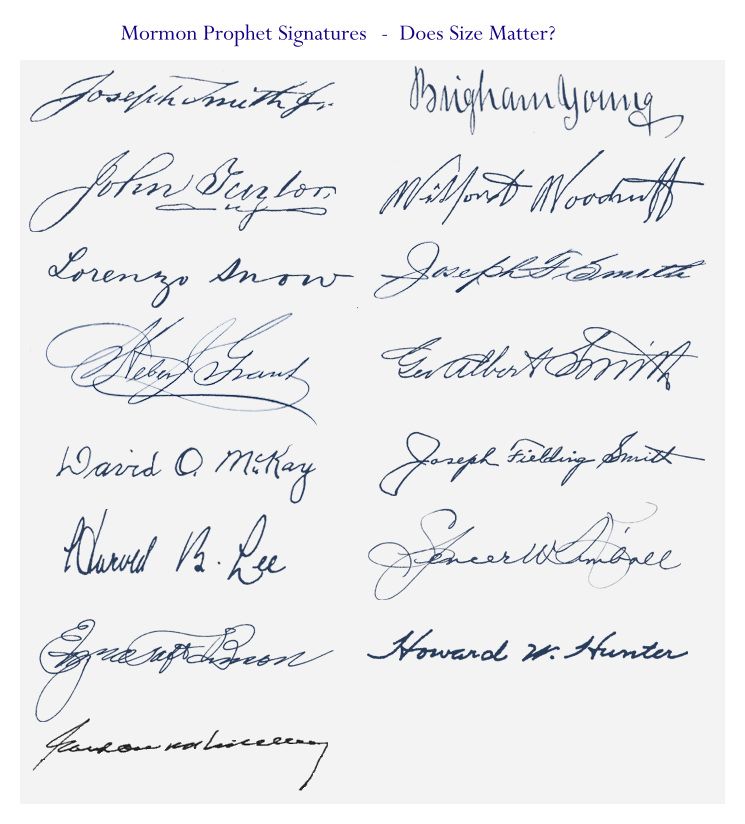 Mormon Prophet Signatures - Does Size Matter?
Joseph Smith Jr.
Brigham Young
John Taylor
Wilford Woodruff
Lorenzo Snow
Joseph F. Smith
Heber J Grant
Geo Albert Smith
David O. McKay
Joseph Fielding Smith
Harold B. Lee
Spencer W. Kimball
Ezra Taft Benson
Howard W. Hunter
Gordon B. Hinckley